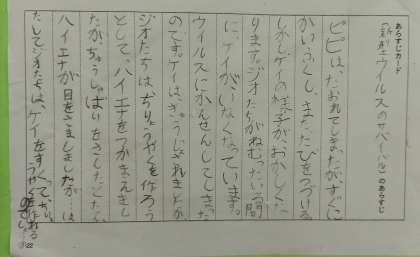 あらすじカード
「新型ウイルスのサバイバル」のあらすじ
ピピは、たおれてしまったが、すぐに
かいふくし、またたびをつづける。
しかしケイの様子が、おかしくな
ります。ジオたちがねむっている間
に、ケイがいなくなっています。
ウイルスにかんせんしてしまった
のです。ケイは
ジオたちは、ちりょうやくを作ろう
として、ハイエナをつかまえまし
たが、ちゅうしゃばりをさしたとたん、
ハイエナが目をさましましたが…は
たしてジオたちは、ケイをすくって、ちりょうやくを作れる
のでしょ
22